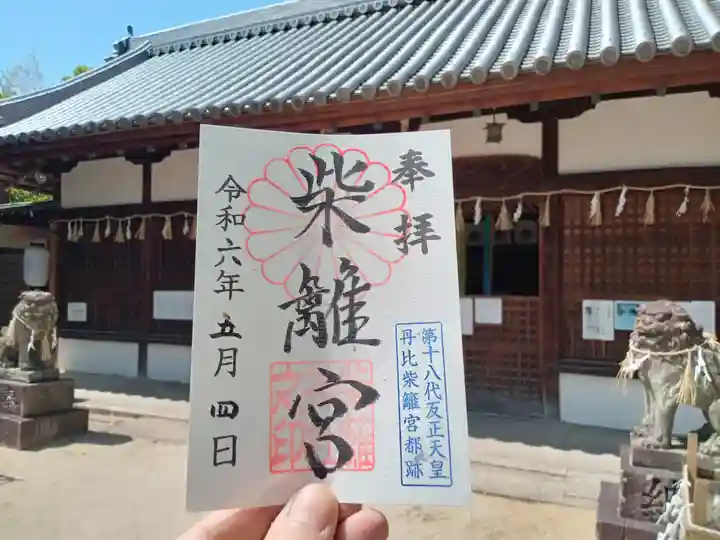 奉拝
柴籬宮
令和六年五月四日
第十八代反正天皇
丹比柴籬宮都跡